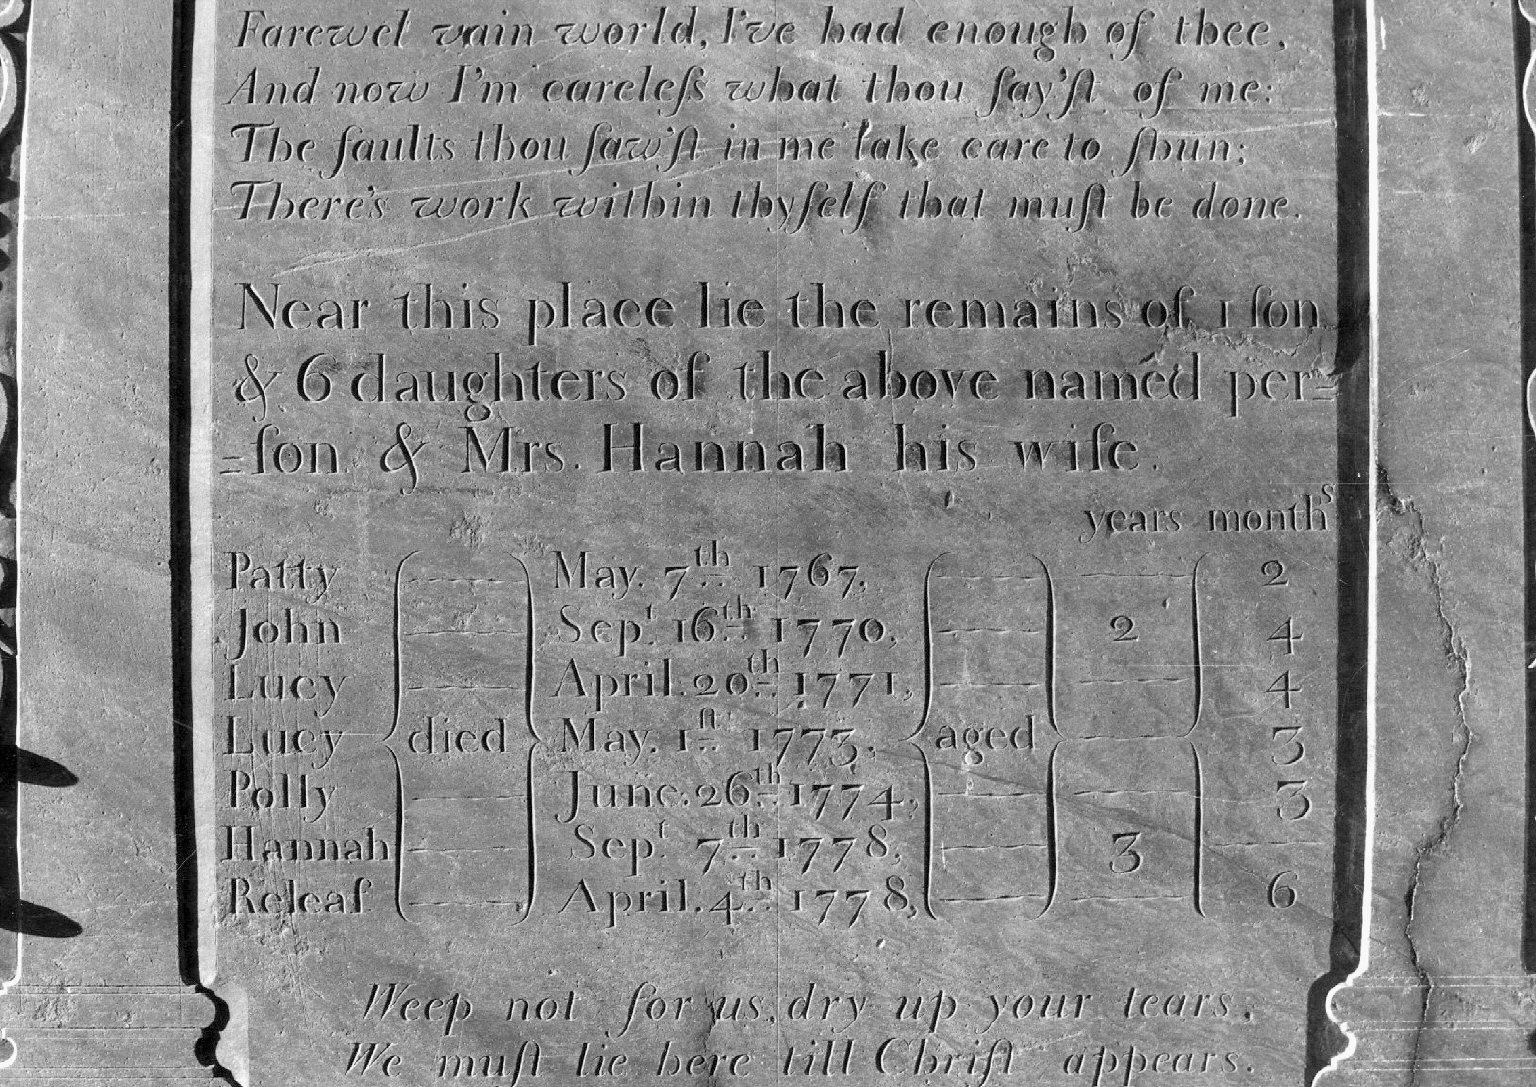 Farewel vain world, I've had enough of thee,
And now I'm careleſs what thou ſay'ſt of me:
The faults thou ſaw'ſt in me take care to ſhun;
There's work within thyſelf that muſt be done.
Near this place lie the remains of 1 ſon
& 6 daughters of the above named per=
=ſon & Mrs. Hannah his wife.
years months
Patty May. 7th 1767, 2
John Sept. 16th 1770, 2 4
Lucy April. 20th 1771, 4
Lucy died May. 1ſt 1773, aged 3
Polly June. 26th 1774, 3
Hannah Sept. 7th 1778, 3
Releaf April. 4th 1778, 6
Weep not for us, dry up your tears,
We muſt lie here till Chriſt appears.